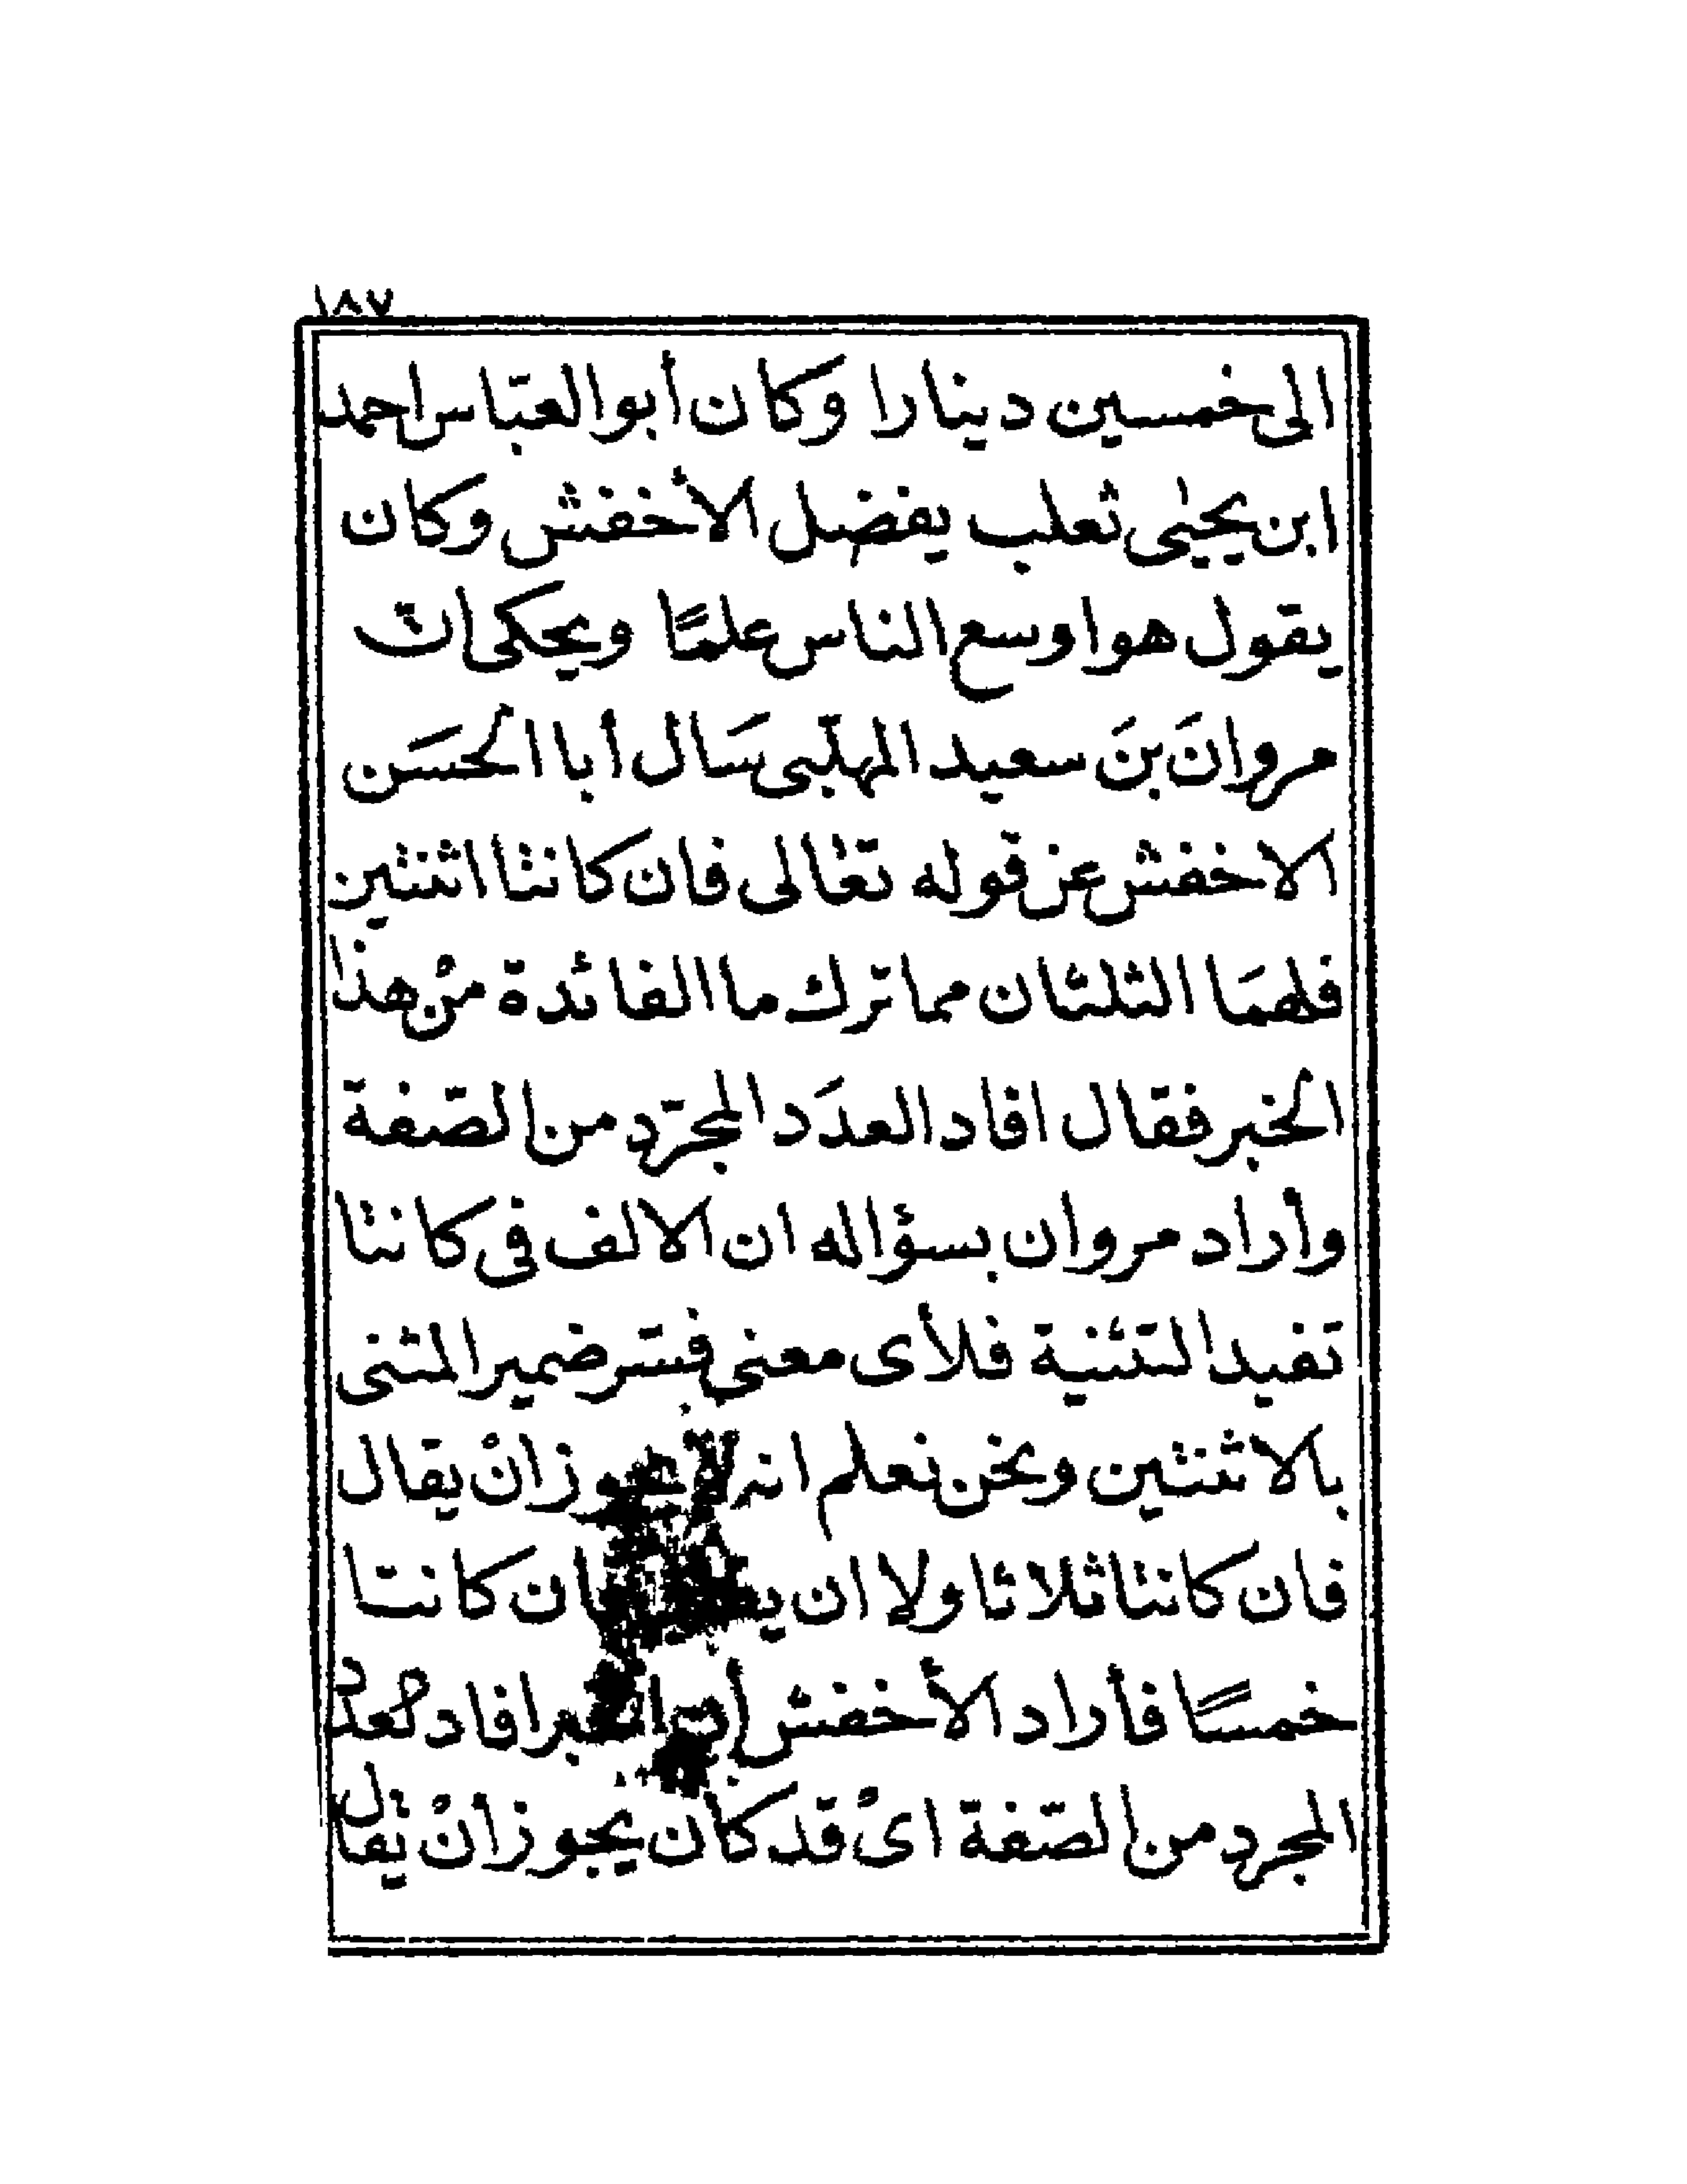 ١٨٧
الى خمسين دينارا وكان أبو العبّاس احمد
ابن يحيٰى ثعلب يفضل الأخفش وكان
يقول هو اوسع الناس علمًا ويحكى انّ
مروانَ بنَ سعيد المهلّبى سَال أبا الحسَن
الاخفش عن قوله تعٰالى فان كانتا اثنتين
فلهمَا الثلثان مما ترك ما الفائدة منْ هذا
الخبر فقال افاد العدَد المجرّد من الصّفة
وأراد مروان بسؤاله ان الالف فى كانتا
تفيد التثنية فلأى معنى فسّر ضمير المثنى
بالاثنتين ونحن نعلم انه لا يجوز انْ يقال
فان كانتا ثلاثا ولا ان فان كانتا
خمسًا فأراد الأخفش أن الخبر افاد العدد
المجرد من الصّفة اىْ قد كان يجوز أنْ يقال